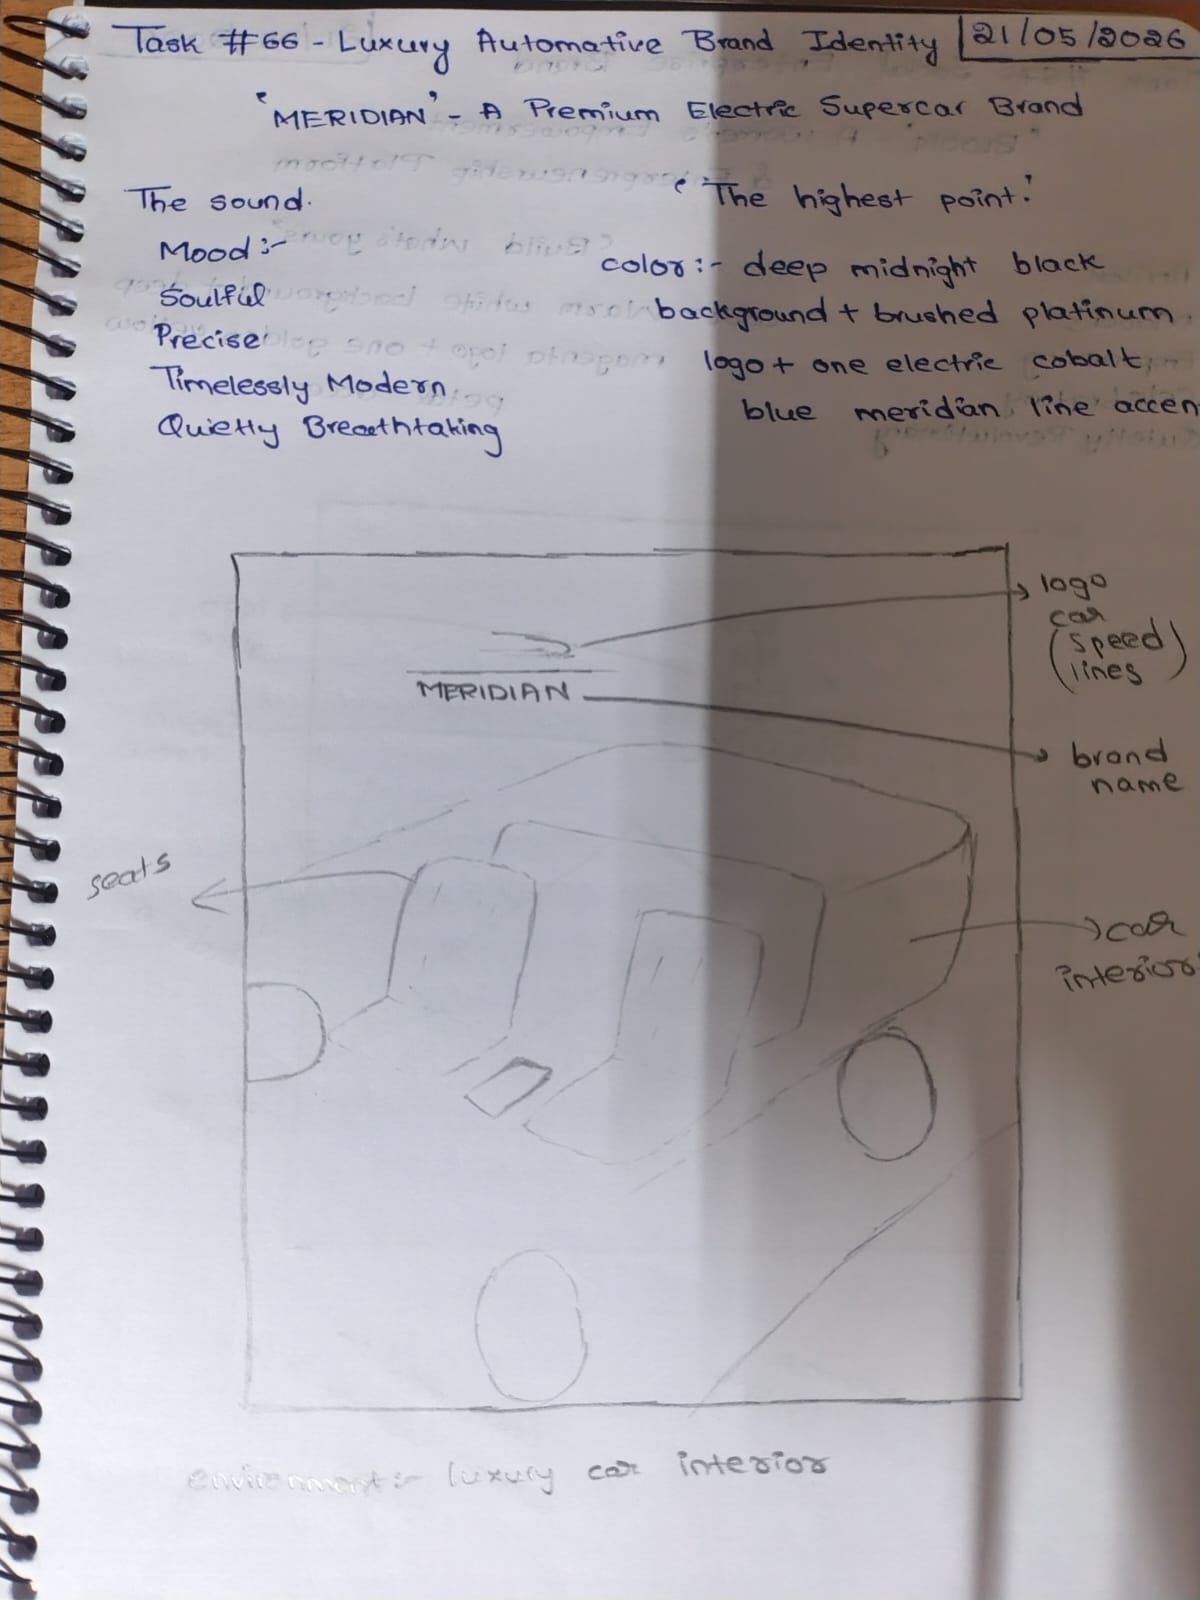 Task #66 - Luxury Automative Brand Identity 21/05/2026
'MERIDIAN' - A Premium Electric Supercar Brand
The sound.
'The highest point.'
Mood :-
Soulful
Precise
Timelessly Modern
Quietly Breathtaking
color :- deep midnight black
background + brushed platinum
logo + one electric cobalt
blue meridian line accen
logo
car
(speed
lines)
MERIDIAN
brand
name
seats
car
interior
environment :- luxury car interior